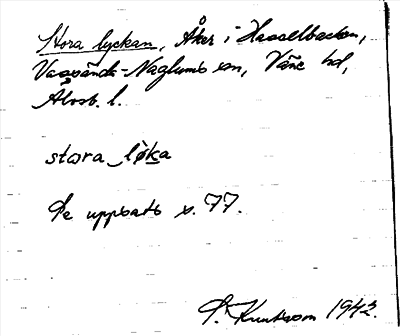 Stora lyckan, Åker i Hasselbacken,
Vassända-Naglums sn, Väne hd,
Älvsb. l.
stora lø̀ka
Se uppsats s. 77.
S. Knutsson 1942.